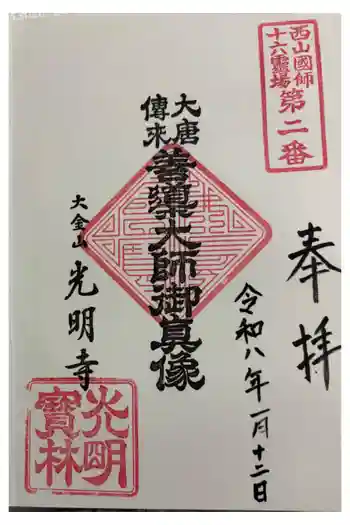 西山國師
十六霊場
第二番
奉拝
令和八年一月十二日
大唐
傳来
善導大師御真像
大金山
光明寺
光明
寳林